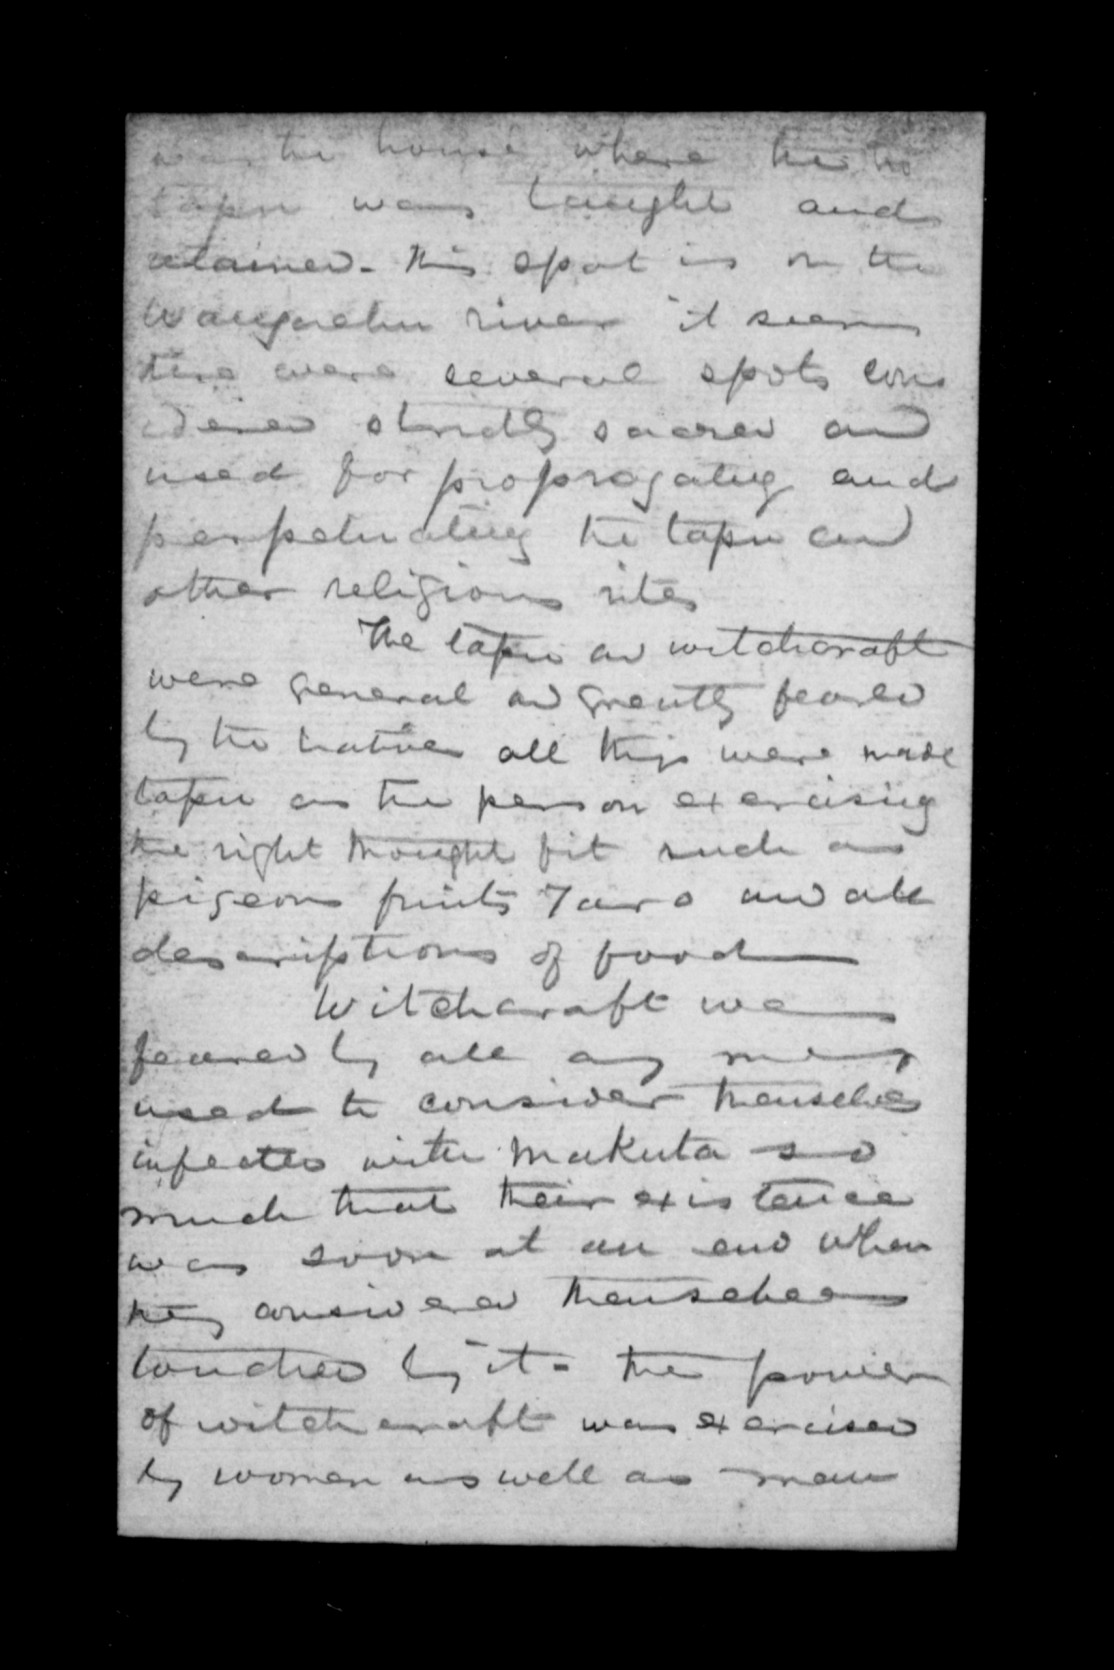 was the house where the
tapu was taught and
retained - this spot is on the
Wangaehu river it seems
there were several spots cons
idered strictly sacred and
used for propregating and
perpetuating the tapu and
other religious rites
The tapu and witchcraft
were general and greatly feared
by the natives all things were made
tapu as the person exercising
the right thought fit such as
pigeons fruits Taro and all
descriptions of food
Witchcraft was
feared by all any
used to consider themselves
infected with Makuta so
much that their existence
was soon at an end when
they considered themselves
touched by it - the power
of witchcraft was exercised
by women as well as men